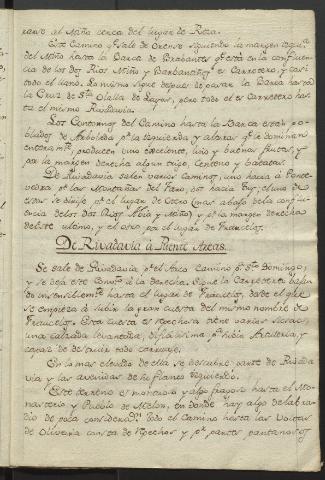 rarse al Miño cerca del lugar de Reza.
Este Camino qᵉ sale de Orense siguiendo la margen izquᵈᵃ
del Miño hasta la Barca de Brabantes qᵉ está en la confluen-
cia de los dos Rios Miño y Barbantiño es Carretero, y casi
todo el llano. Lo mismo sigue despues de pasar la Barca hasta
la Cruz de Sᵗᵃ Olalla de Layas, pero todo el es Carretero has-
ta el mismo Rivadavia.
Los Contornos del Camino hasta la Barca estan po-
blados de Arboleda pʳ la izquierda y alturas qᵉ le dominan
enteramᵗᵉ, producen vino excelente, lino y buenas frutas, y
por la margen derecha algun trigo, Centeno y batatas.
De Rivadavia salen varios Caminos, uno hacia à Ponte-
vedra pʳ las Montañas del Faro, dos hacia Tuy, el uno de
estos se dirije pʳ el lugar de abajo de la conflu-
encia de los dos Rios Abia y Miño, y pʳ la margen derecha
del este ultimo, y el otro por el lugar de Francelos.
De Rivadavia à Puente Areas.
Se sale de Rivadavia pʳ el Arco Camino pʳ Sᵗᵒ Domingo,
y se deja este Convᵗᵒ à la derecha. Sigue la Carretera bajan-
do insensiblemᵗᵉ hasta el lugar de Francelos, desde el que
se empieza à subir la gran cuesta del mismo nombre de
Francelos. Esta cuesta es estrecha tiene varias
una calzada levantada, dificilisima pᵃ subir Artilleria, y
capaz de destruir todo carruage.
En lo mas elevado de ella se descubre parte de Rivada-
via y las avenidas de su flanco izquierdo.
Este terreno es montuoso y algo fragoso hasta el Mo-
nasterio y Pueblo de Melon, en donde hay algo de labra-
dio de poca considerᵒⁿ. Todo el Camino hasta las Voltas
de Oliveira consta de repechos y pʳ partes pantanosos